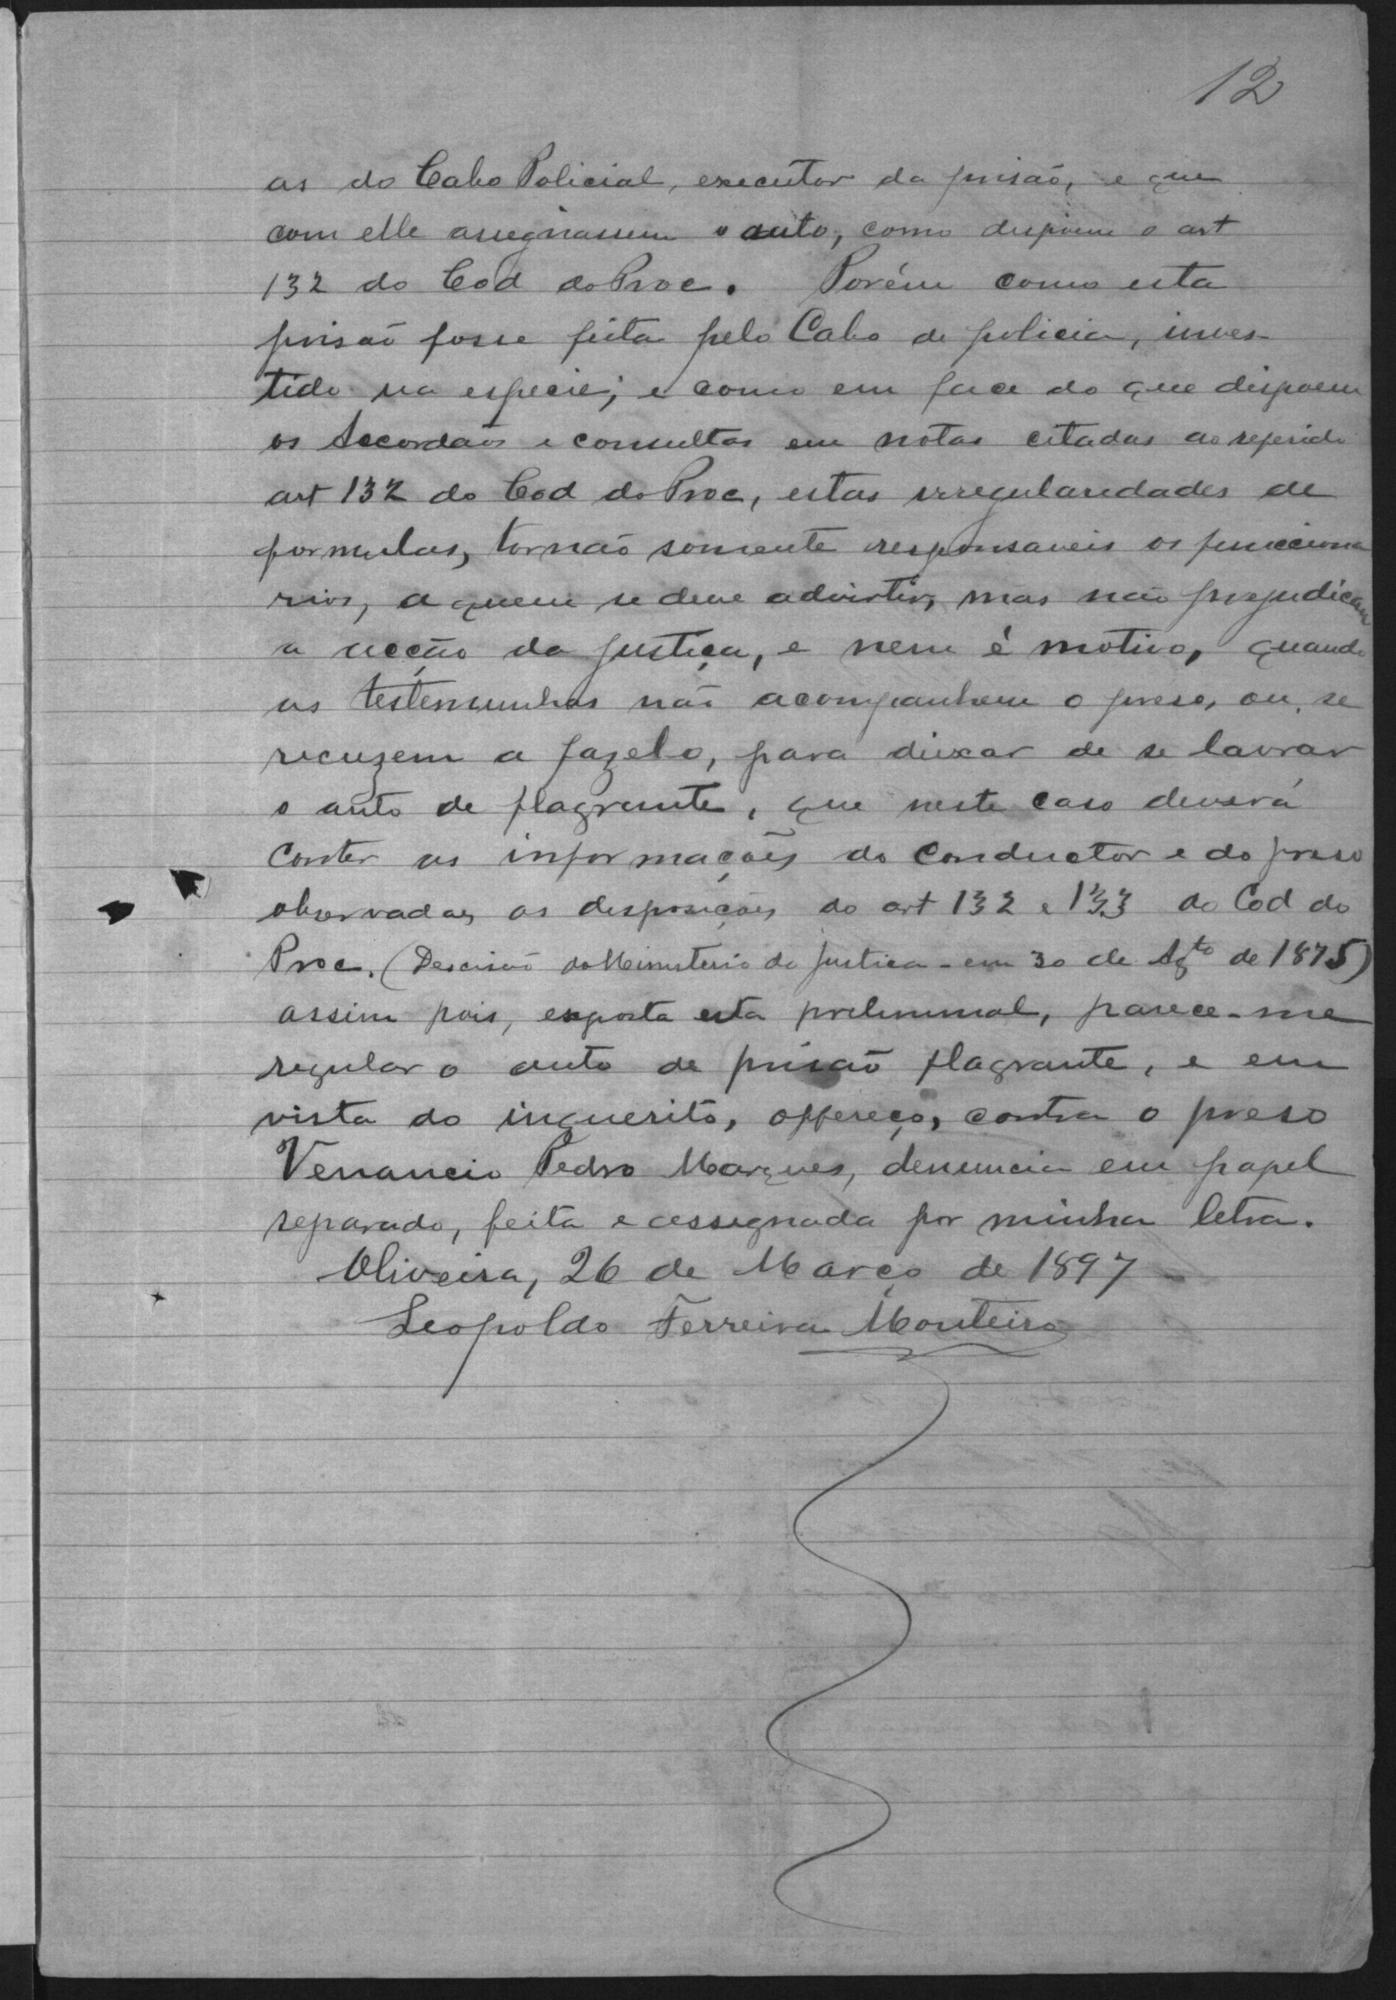 12
as do Cabo Policial, executor da prisão, e que
com elle assegnassem o auto, como dispoem o art
132 do Cod do Proc. Porém como esta
prisão fosse feita pelo Cabo de policia, inves-
tido na especie; e como em face do que dispoem
os Accordãos e consultas em notas citadas ao referido
art 132 do Cod do Proc, estas irregularedades de
formulas, tornão somente responsaveis os funcciona
rios, a quem se deve advirtir, mas não prejudicam
a acção da justiça, e nem é motivo, quando
as testemunhas não acompanhem o preso, ou se
recuzem a fazelo, para deixar de se lavrar
o auto de flagrante, que neste caso deverá
conter as informações do conductor e do preso
observadas as desposições do art 132 e 133 do Cod do
Proc. (Descisão do Ministerio da Justica - em 30 de Agto de 1875)
assim pois, exposta esta preliminal, parece-me
regular o auto de prisão flagrante, e em
vista do inquerito, offereço, contra o preso
Venancio Pedro Marques, denuncia em papel
separado, feita e assegnada por minha letra.
Oliveira, 26 de Março de 1897
Leopoldo Ferreira Monteiro